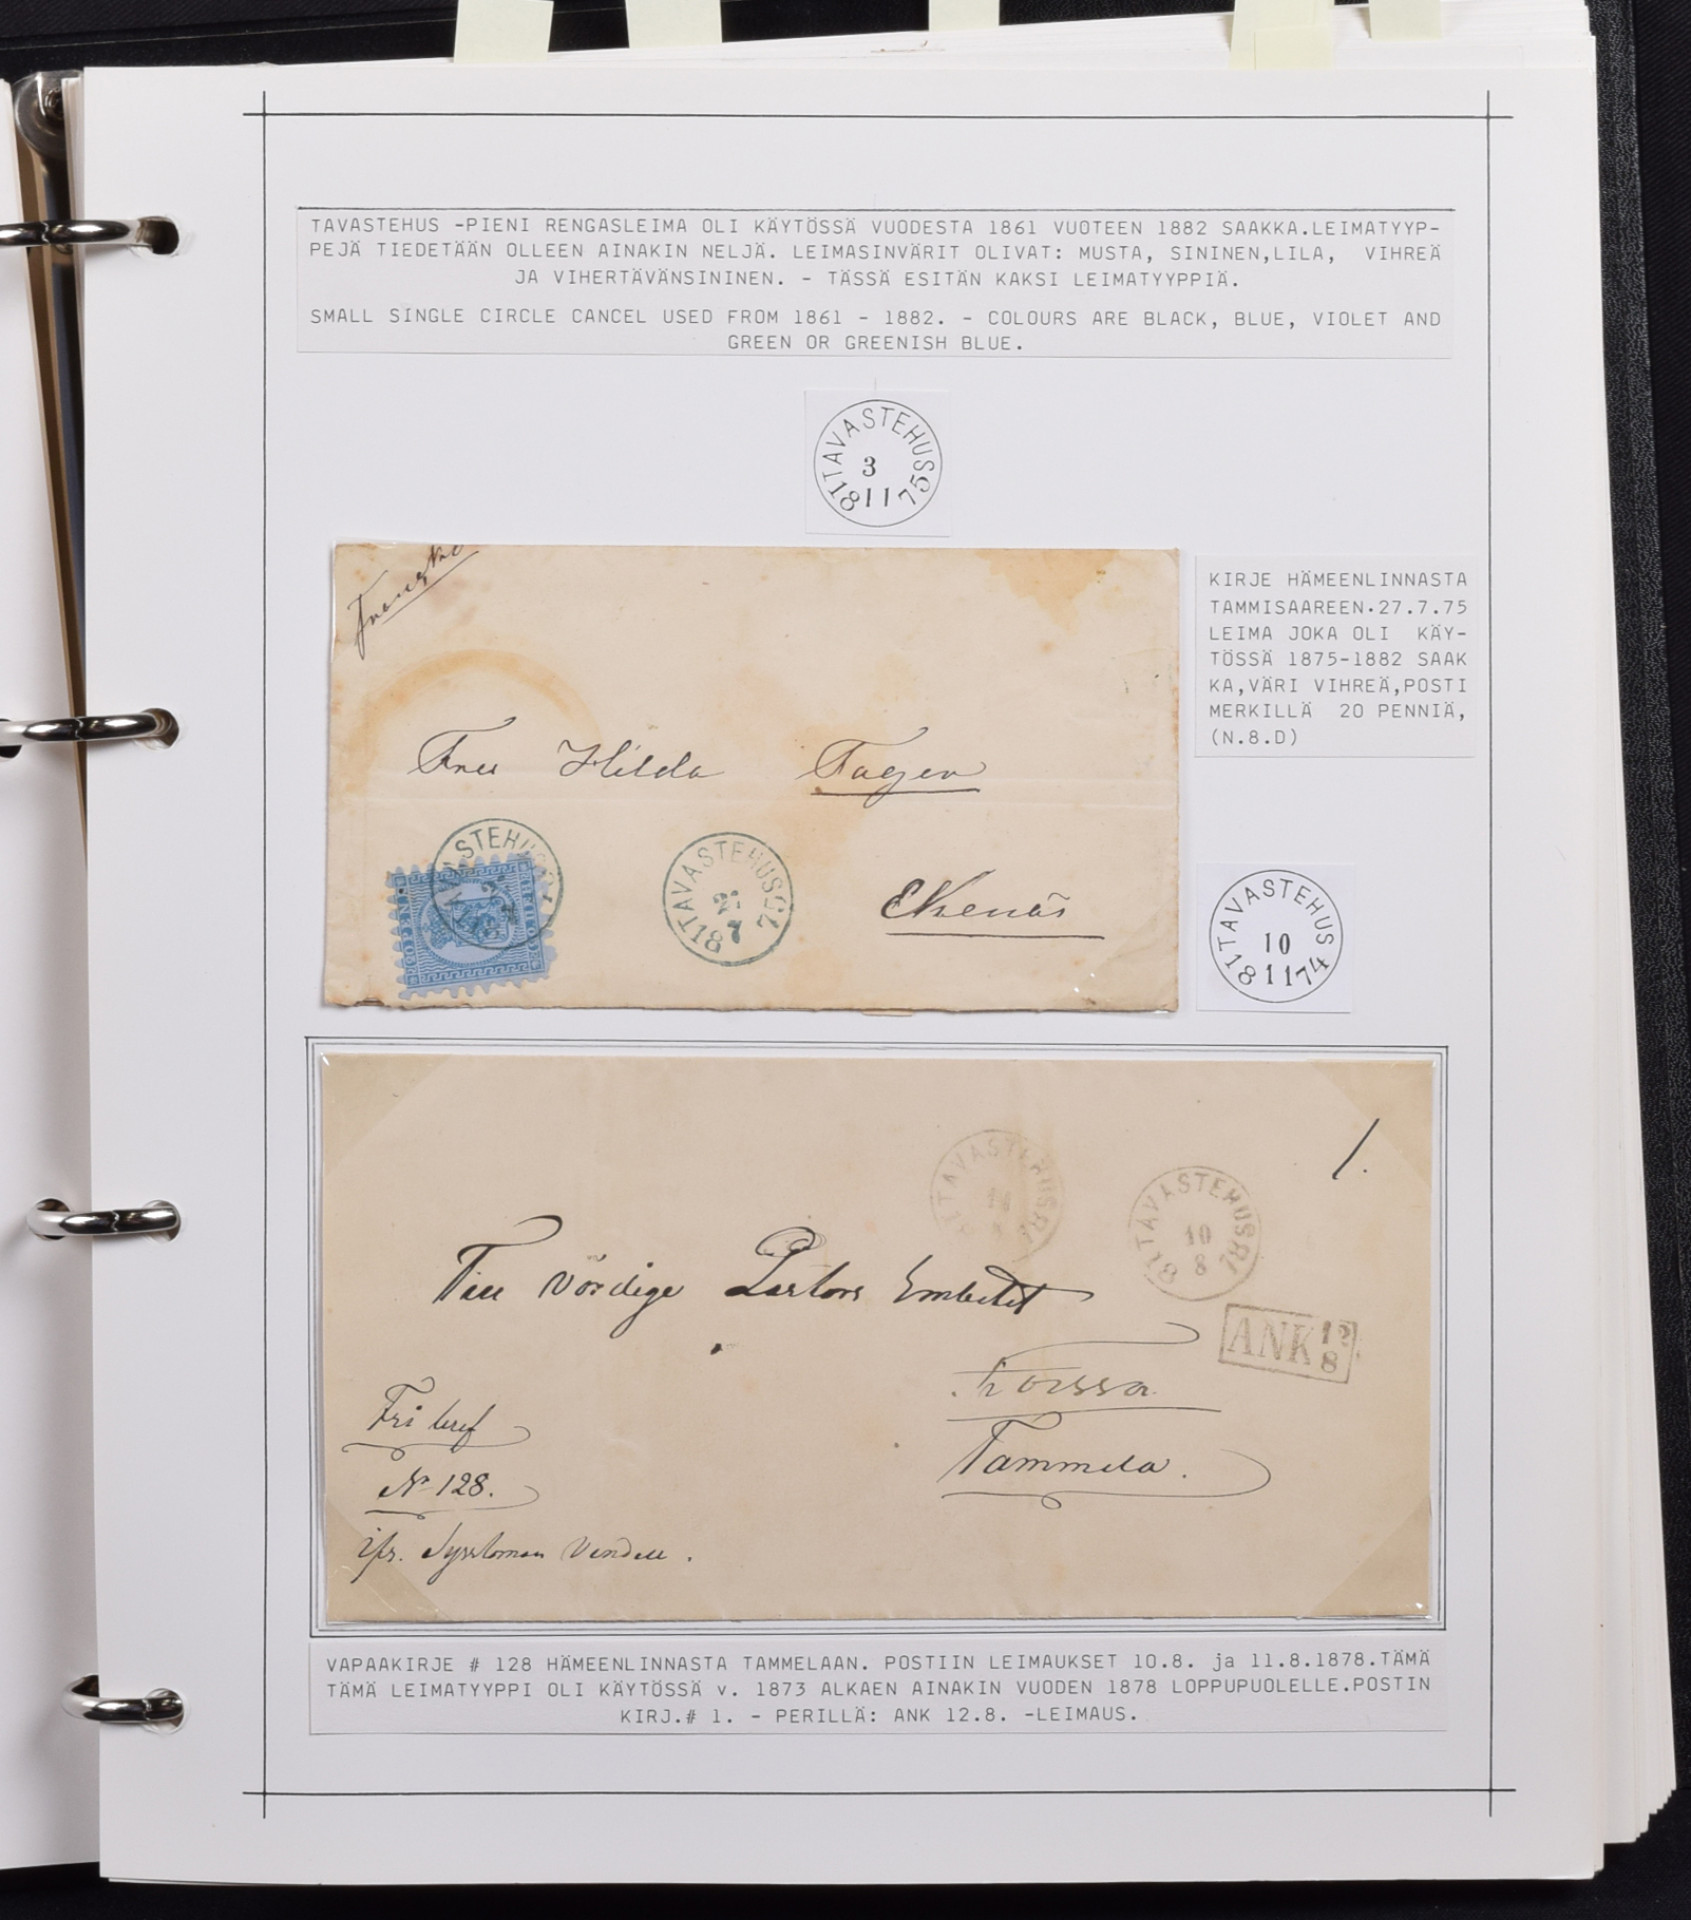 TAVASTEHUS -PIENI RENGASLEIMA OLI KÄYTÖSSÄ VUODESTA 1861 VUOTEEN 1882 SAAKKA.LEIMATYYP-
PEJÄ TIEDETÄÄN OLLEEN AINAKIN NELJÄ. LEIMASINVÄRIT OLIVAT: MUSTA, SININEN,LILA, VIHREÄ
JA VIHERTÄVÄNSININEN. - TÄSSÄ ESITÄN KAKSI LEIMATYYPPIÄ.
SMALL SINGLE CIRCLE CANCEL USED FROM 1861 - 1882. - COLOURS ARE BLACK, BLUE, VIOLET AND
GREEN OR GREENISH BLUE.
TAVASTEHUS
3
18 11 75
KIRJE HÄMEENLINNASTA
TAMMISAAREEN.27.7.75
LEIMA JOKA OLI KÄY-
TÖSSÄ 1875-1882 SAAK
KA,VÄRI VIHREÄ,POSTI
MERKILLÄ 20 PENNIÄ,
(N.8.D)
Fru Hilda Fagen
Ekenäs
TAVASTEHUS
TAVASTEHUS
27
18 7 75
TAVASTEHUS
10
18 11 74
1.
TAVASTEHUS
TAVASTEHUS
10
8
ANK 12
8
Till Vördige Pastors Embetet
Forssa
Tammela.
Fri bref
No 128.
VAPAAKIRJE # 128 HÄMEENLINNASTA TAMMELAAN. POSTIIN LEIMAUKSET 10.8. ja 11.8.1878.TÄMÄ
TÄMÄ LEIMATYYPPI OLI KÄYTÖSSÄ v. 1873 ALKAEN AINAKIN VUODEN 1878 LOPPUPUOLELLE.POSTIN
KIRJ.# 1. - PERILLÄ: ANK 12.8. -LEIMAUS.